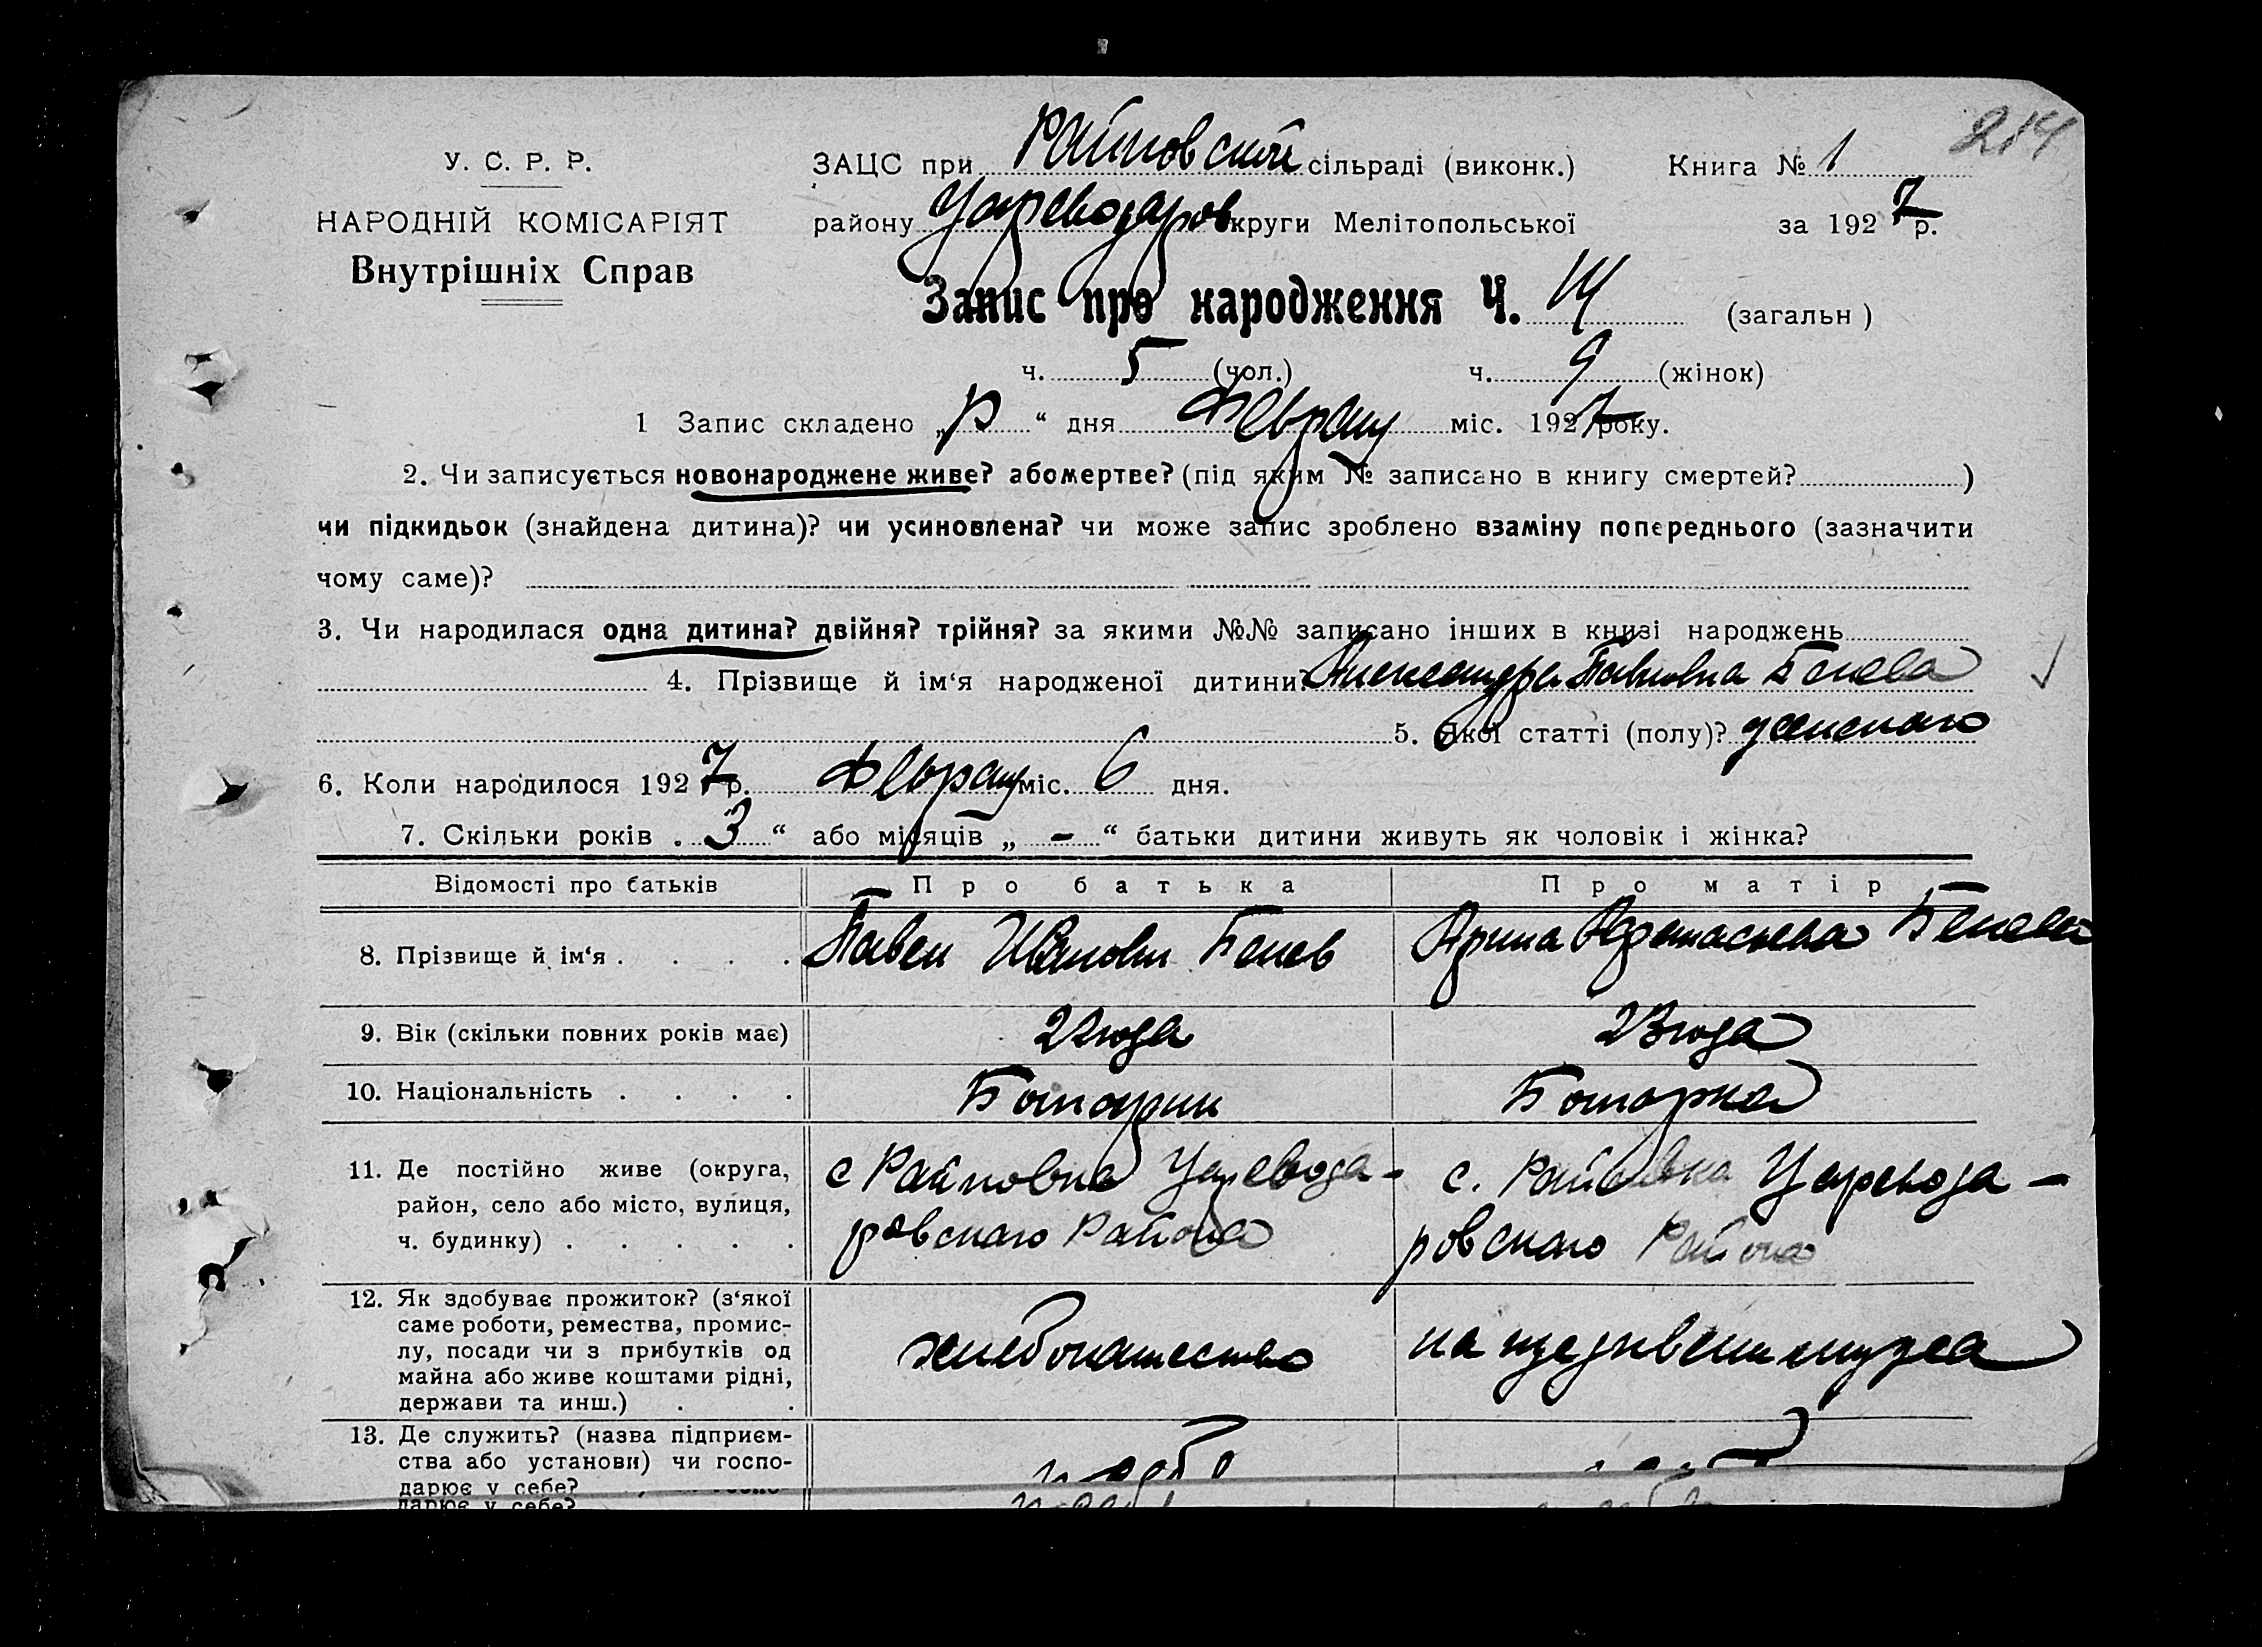 284
У. С. Р. Р.
НАРОДНІЙ КОМІСАРІЯТ
Внутрішніх Справ
ЗАЦС при Райновский сільраді (виконк.) Книга № 1
району Цареводаров округи Мелітопольської за 1927 р.
Запис про народження Ч. 14 (загальн)
ч. 5 (чол.) ч. 9 (жінок)
1 Запис складено „ “ дня февраля міс. 1927 року.
2. Чи записується новонароджене живе? або мертве? (під яким № записано в книгу смертей? )
чи підкидьок (знайдена дитина)? чи усиновлена? чи може запис зроблено взаміну попереднього (зазначити
чому саме)?
3. Чи народилася одна дитина? двійня? трійня? за якими №№ записано інших в книзі народжень
4. Прізвище й ім‘я народженої дитини: Александра Павловна Белева
5. Якої статті (полу)? женскаго
6. Коли народилося 1927 р. февраля міс. 6 дня.
7. Скільки років „ 3 “ або місяців „ - “ батьки дитини живуть як чоловік і жінка?
Відомості про батьків Про батька Про матір
8. Прізвище й ім‘я . . . . Павел Иванович Белев Арина Афанасьева Белева
9. Вік (скільки повних років має) 22 года 23 года
10. Національність . . . . Болгарин Болгарка
11. Де постійно живе (округа,
район, село або місто, вулиця,
ч. будинку) . . . . .
с Райновка Цоревода-
ровскаго Района
с. Райновка Царевода-
ровскаго Района
12. Як здобуває прожиток? (з‘якої
саме роботи, ремества, промис-
лу, посади чи з прибутків од
майна або живе коштами рідні,
держави та инш.) . .
хлебопашество
на иждивении мужа
13. Де служить? (назва підприєм-
ства або установи) чи госпо-
дарює у себе?
дарює у себе?